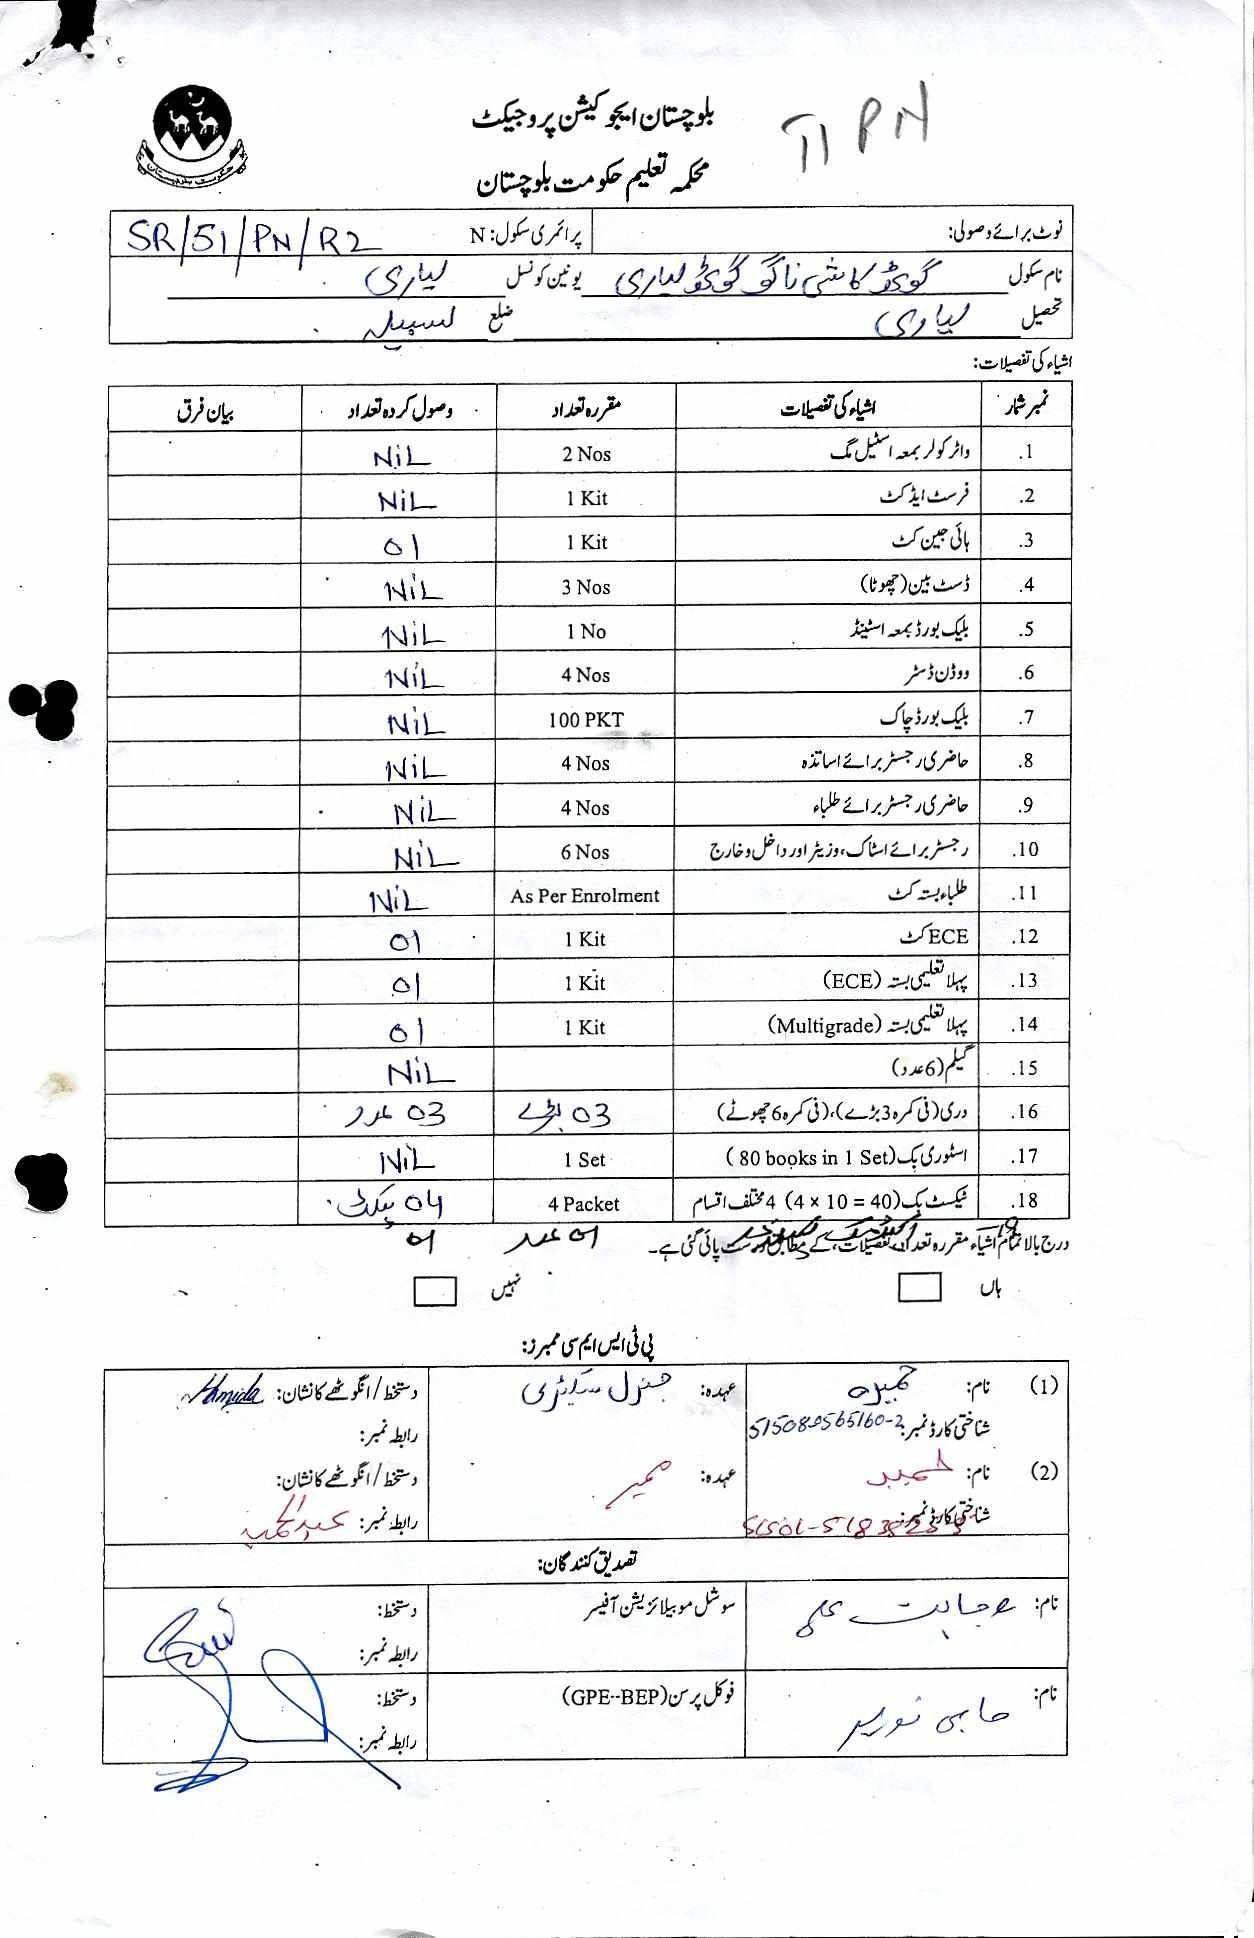 بلوچستان ایجوکیشن پروجیکٹ
T1 PN
محکمہ تعلیم حکومت بلوچستان
حکومت بلوچستان
نوٹ برائے وصولی: پرائمری سکول: N SR/51/PN/R2
نام سکول گوٹھ کاشی ناگو گوٹھ لیاری یونین کونسل لیاری
تحصیل لیاری ضلع لسبیلہ
اشیاء کی تفصیلات:
نمبر شمار اشیاء کی تفصیلات مقررہ تعداد وصول کردہ تعداد بیان فرق
1. واٹر کولر بمعہ اسٹیل مگ 2 Nos NiL
2. فرسٹ ایڈ کٹ 1 Kit NiL
3. ہائی جین کٹ 1 Kit 01
4. ڈسٹ بین (چھوٹا) 3 Nos NiL
5. بلیک بورڈ بمعہ اسٹینڈ 1 No NiL
6. ووڈن ڈسٹر 4 Nos NiL
7. بلیک بورڈ چاک 100 PKT NiL
8. حاضری رجسٹر برائے اساتذہ 4 Nos NiL
9. حاضری رجسٹر برائے طلباء 4 Nos NiL
10. رجسٹر برائے اسٹاک، وزیٹر اور داخل و خارج 6 Nos NiL
11. طلباء بستہ کٹ As Per Enrolment NiL
12. ECE کٹ 1 Kit 01
13. پہلا تعلیمی بستہ (ECE) 1 Kit 01
14. پہلا تعلیمی بستہ (Multigrade) 1 Kit 01
15. گیلم (6 عدد) NiL
16. دری (فی کمرہ 3 بڑے)، (فی کمرہ 6 چھوٹے) 03 بڑے 03 عدد
17. اسٹوری بک (80 books in 1 Set) 1 Set NiL
18. ٹیکسٹ بک (4 × 10 = 40) 4 مختلف اقسام 4 Packet 04 پیکٹ
19 01 عدد 01
درج بالا تمام اشیاء مقررہ تعداد، تفصیلات، کے مطابق درست پائی گئی ہے۔
ہاں نہیں
پی ٹی ایس ایم سی ممبرز:
(1) نام: حمیدہ عہدہ: جنرل سیکٹری دستخط / انگوٹھے کا نشان: Hamida
شناختی کارڈ نمبر: رابطہ نمبر:
(2) نام: عہدہ: ممبر دستخط / انگوٹھے کا نشان:
شناختی کارڈ نمبر: رابطہ نمبر: عبدالحمید
تصدیق کنندگان:
نام: وجاہت علی سوشل موبیلائزیشن آفیسر دستخط:
رابطہ نمبر:
نام: حاجی فوکل پرسن (GPE--BEP) دستخط:
رابطہ نمبر: